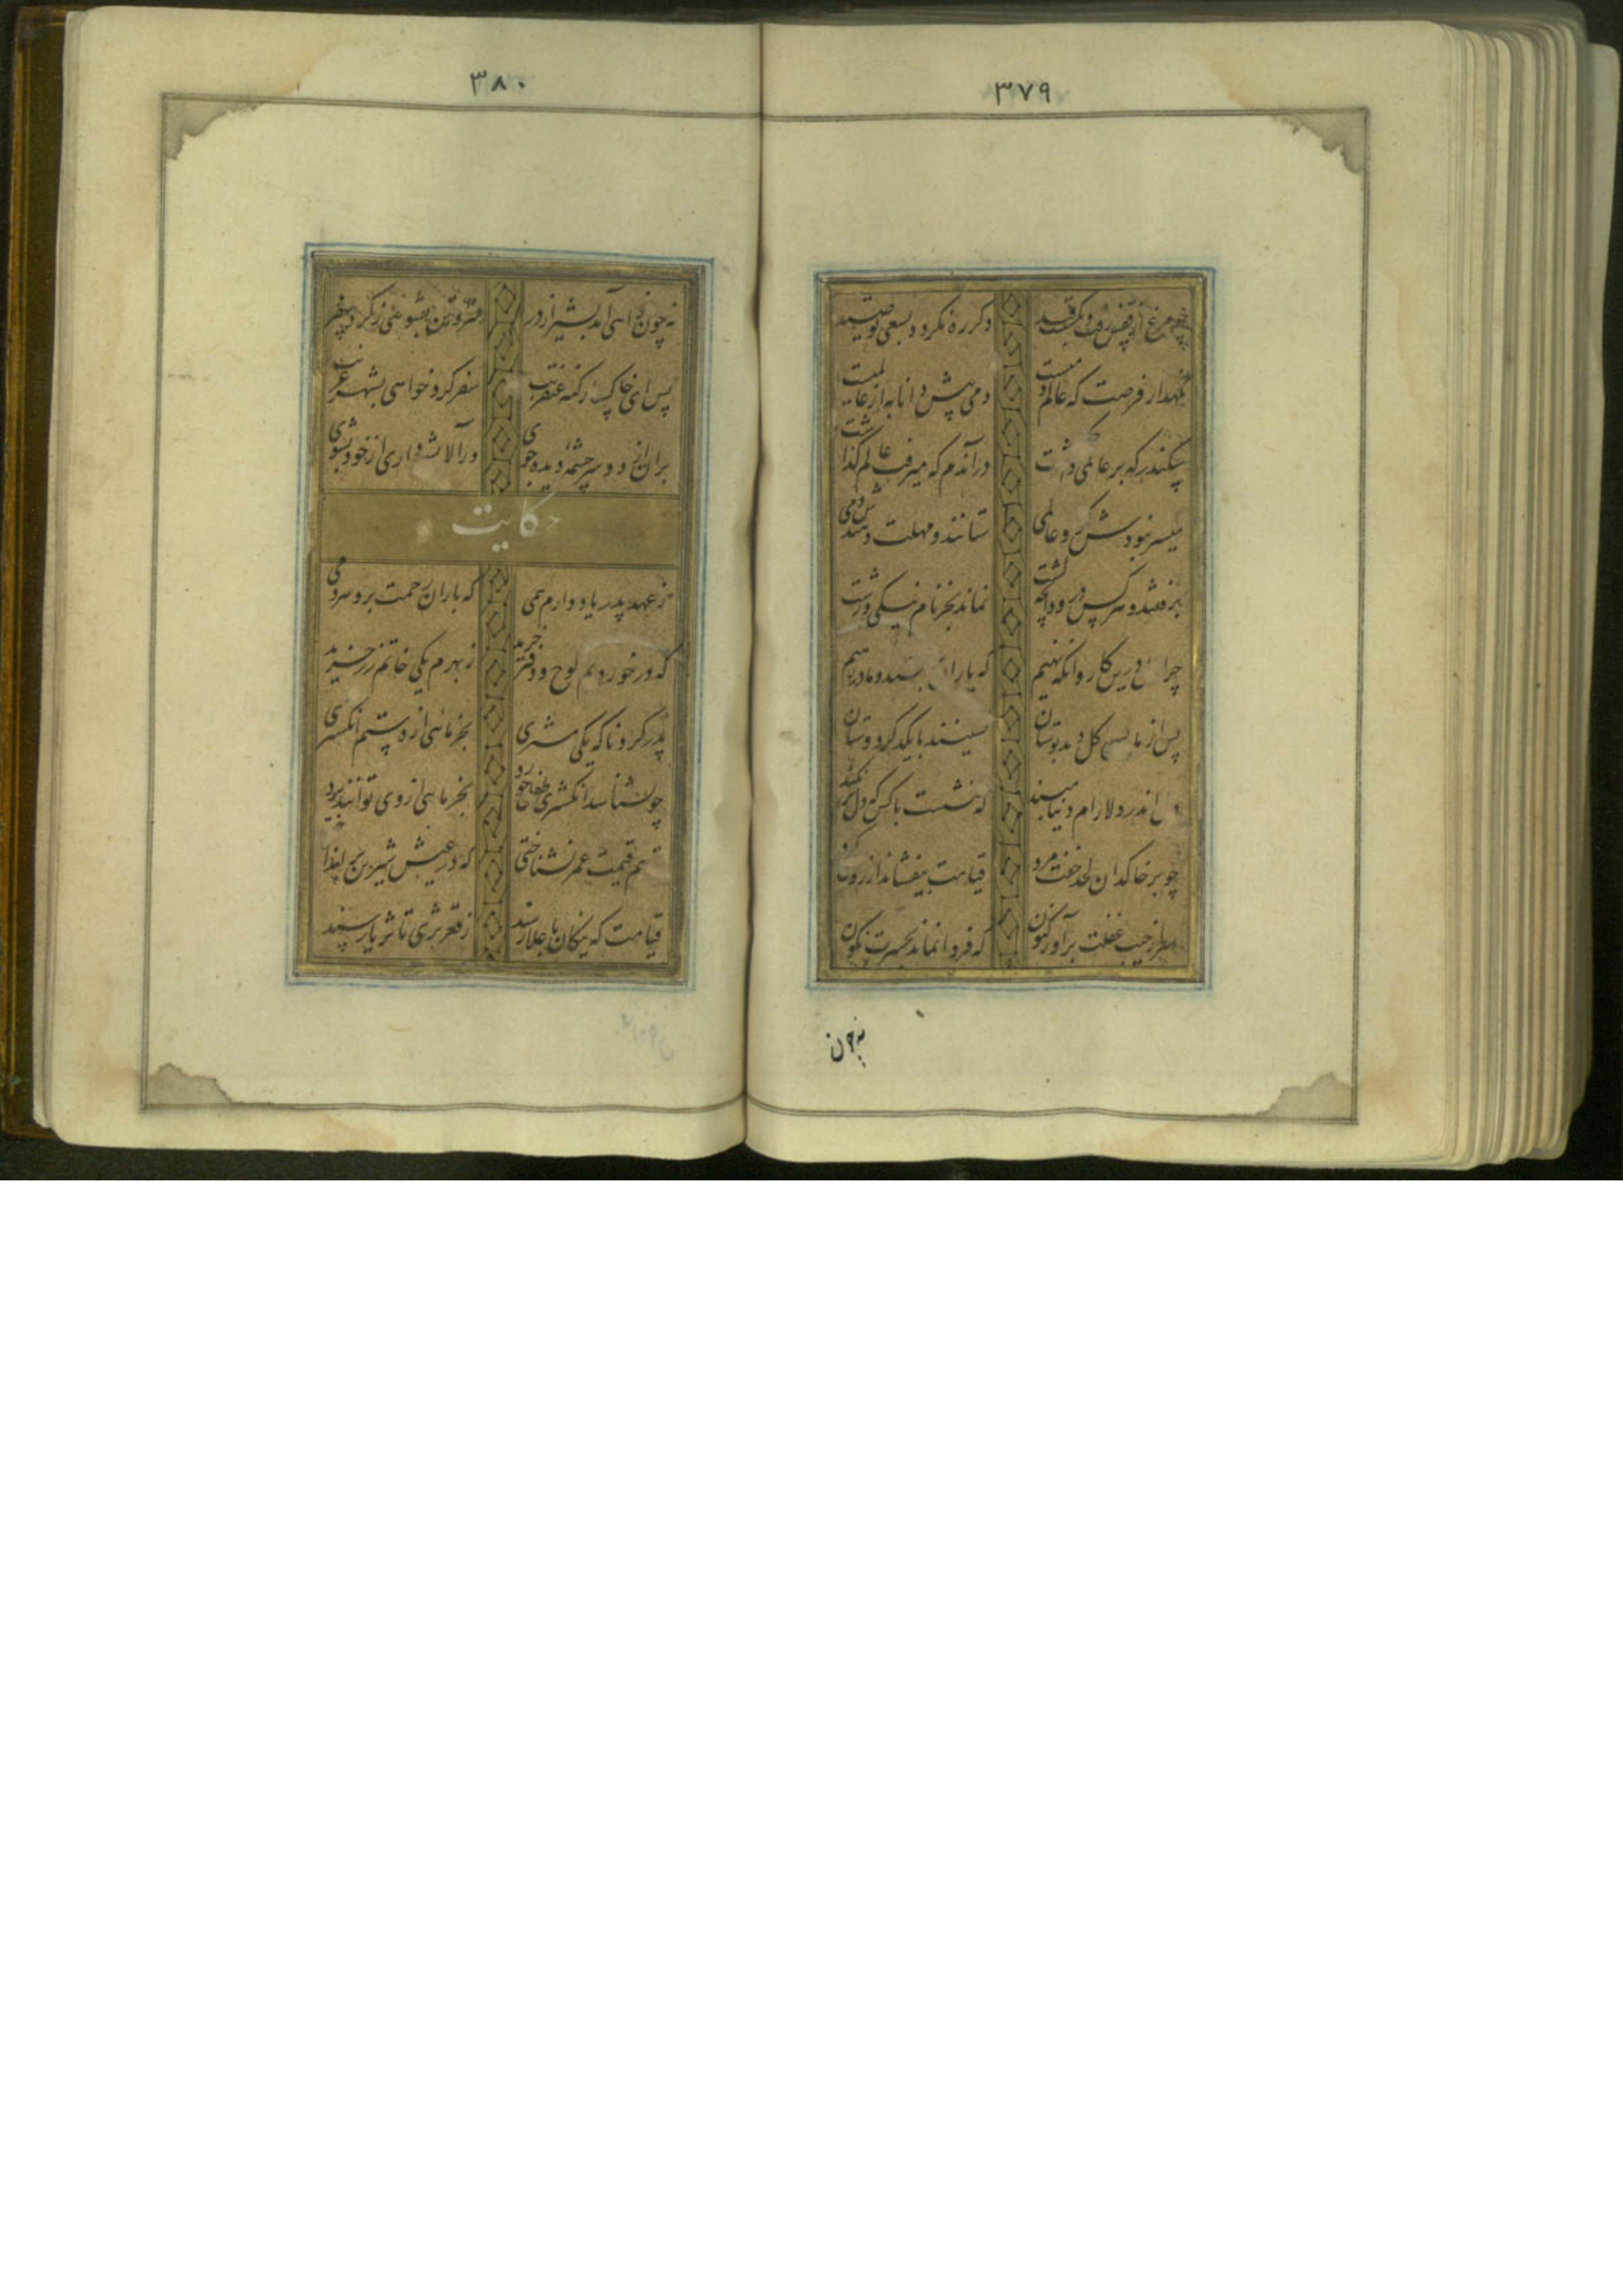 ۳۷۹
چو مرغ از قفس رفت و بگسست قید دگر ره نگردد بسعی تو صید
نگهدار فرصت که عالم دمیست دمی پیش دانا به از عالمیست
سکندر که بر عالمی حکم داشت در آندم که میرفت عالم گذاشت
میسر نبودش کزو عالمی ستانند و مهلت دهندش دمی
برفتند و هر کس درود آنچه کشت نماند بجز نام نیکی و زشت
چرا دل برین کاروانگه نهیم که یاران برفتند و ما در رهیم
پس از ما بسی گل دهد بوستان نشینند با یکدگر دوستان
دل اندر دلارام دنیا مبند که ننشست با کس که دل بر نکند
چو بر خاکدان لحد خفت مرد قیامت بیفشاند از روی گرد
سر از جیب غفلت بر آور کنون که فردا نماند بحسرت نگون
نه چون
۳۸۰
نه چون خواهی آمد بشیراز در سر و تن بشویی ز گرد سفر
پس ای خاکسار گنه عنقریب سفر کرد خواهی بشهر غریب
بران از دو سرچشمهٔ دیده جوی ور آلایشی داری از خود بشوی
حکایت
ز عهد پدر یاد دارم همی که باران رحمت برو هر دمی
که در خوردیم لوح و دفتر خرید ز بهرم یکی خاتم زر خرید
بدر کرد ناگه یکی مشتری بخرمائی از دستم انگشتری
چو نشناسد انگشتری طفل خرد بخرمائی از وی توانند برد
تو هم قیمت عمر نشناختی که در عیش شیرین برانداختی
قیامت که نیکان باعلا رسند ز قعر ثری تا ثریا رسند